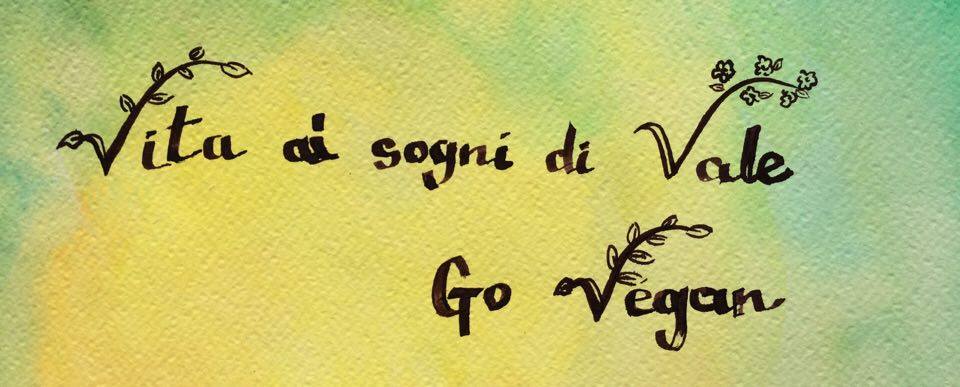 Vita ai sogni di Vale
Go Vegan